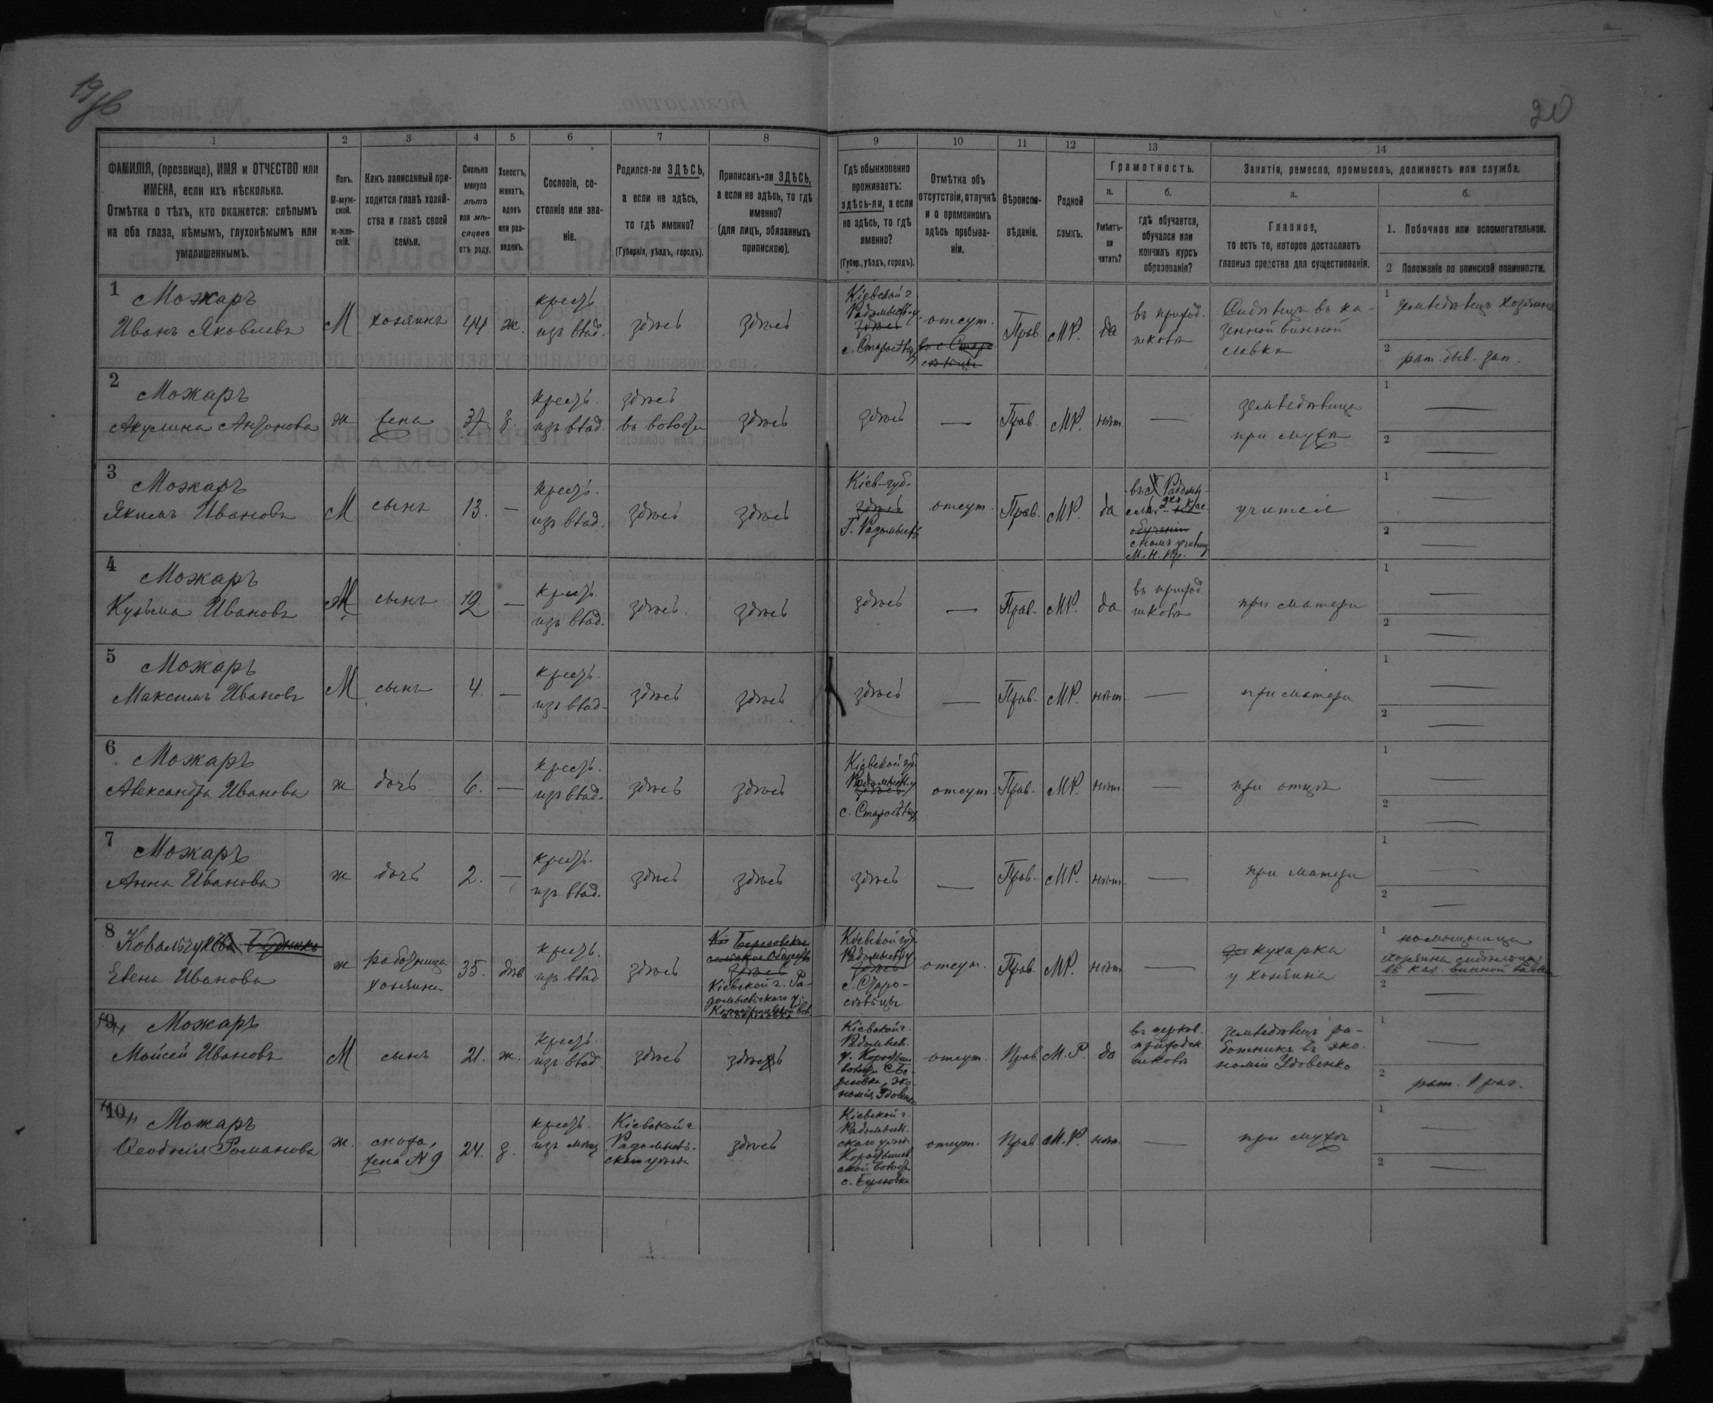 19/об
20
1 2 3 4 5 6 7 8 9 10 11 12 13 14
ФАМИЛІЯ, (прозвище), ИМЯ и ОТЧЕСТВО или
ИМЕНА, если ихъ нѣсколько.
Отмѣтка о тѣхъ, кто окажется: слѣпымъ
на оба глаза, нѣмымъ, глухонѣмымъ или
умалишеннымъ.
Полъ.
М-муж-
ской.
ж-жен-
скій.
Какъ записанный при-
ходится главѣ хозяй-
ства и главѣ своей
семьи.
Сколько
минуло
лѣтъ
или мѣ-
сяцевъ
отъ роду.
Холостъ,
женатъ,
вдовъ
или раз-
веденъ.
Сословіе, со-
стояніе или зва-
ніе.
Родился-ли ЗДѢСЬ,
а если не здѣсь,
то гдѣ именно?
(Губернія, уѣздъ, городъ).
Приписанъ-ли ЗДѢСЬ,
а если не здѣсь, то гдѣ
именно?
(для лицъ, обязанныхъ
припискою).
Гдѣ обыкновенно
проживаетъ:
здѣсь-ли, а если
не здѣсь, то гдѣ
именно?
(Губер., уѣздъ, городъ).
Отмѣтка объ
отсутствіи, отлучкѣ
и о временномъ
здѣсь пребыва-
ніи.
Вѣроиспо-
вѣданіе.
Родной
языкъ.
Грамотность.
а.
Умѣетъ-
ли
читать?
б.
гдѣ обучается,
обучался или
кончилъ курсъ
образованія?
Занятія, ремесло, промыселъ, должность или служба.
а.
Главное,
то есть то, которое доставляетъ
главныя средства для существованія.
б.
1. Побочное или вспомогательное.
2 Положеніе по воинской повинности.
1
Можаръ
Иванъ Яковлевъ
М
хозяинъ
44.
ж.
крест.
изъ влад.
здѣсь
здѣсь
Кіевской г.
здѣсь
отсут.
Прав.
МР.
да
въ приход.
школѣ
Сидѣлецъ въ ка-
зенной винной
лавкѣ
1
земледѣлецъ хозяинъ
2
рат.
2
Можаръ
Акулина Антонова
ж
жена
37.
з.
крест.
изъ влад.
здѣсь
въ волости
здѣсь
здѣсь
—
Прав.
МР.
нѣт
—
земледѣлица
при мужѣ
1 —
2 —
3
Можаръ
Якимъ Ивановъ
М
сынъ
13.
—
крест.
изъ влад.
здѣсь
здѣсь
Кіев. губ.
здѣсь
Г. Радомысль
отсут.
Прав.
МР.
да
М. Н. Пр.
1 —
2 —
4
Можаръ
Кузьма Ивановъ
М
сынъ
12
—
крест.
изъ влад.
здѣсь
здѣсь
здѣсь
—
Прав.
МР.
да
въ приход
школѣ
при матери
1 —
2 —
5
Можаръ
Максимъ Ивановъ
М
сынъ
4.
—
крест.
изъ влад.
здѣсь
здѣсь
здѣсь
—
Прав.
МР.
нѣт
—
при матери
1 —
2 —
6
Можаръ
Александра Иванова
ж
дочь
6.
—
крест.
изъ влад.
здѣсь
здѣсь
Кіевской губ.
здѣсь
отсут.
Прав.
МР.
нѣт
—
при отцѣ
1 —
2 —
7
Можаръ
Анна Иванова
ж
дочь
2.
—
крест.
изъ влад.
здѣсь
здѣсь
здѣсь
—
Прав.
МР.
нѣт
—
при матери
1 —
2 —
8
Елена Иванова
ж
работница
хозяина
35.
дѣв
крест.
изъ влад
здѣсь
здѣсь
Кіевской г. Ра-
домысльскаго у.
Кіевской губ.
здѣсь
отсут.
Прав.
МР.
нѣт
—
кухарка
у хозяина
1
помощница
въ каз. винной лавкѣ
2 —
9
Можаръ
Мойсей Ивановъ
М
сынъ
21.
ж.
крест.
изъ влад.
здѣсь
здѣсь
Кіевской г.
Радомысл.
отсут.
Прав.
М.Р.
да
въ церков.
приходск
школѣ
земледѣлецъ ра-
ботникъ въ эко-
номіи Удовенко
1 —
2
рат. 1 раз.
10
Можаръ
Ѳеодосія Романова
ж.
сноха,
жена №9
24.
з.
крест.
изъ
Кіевской г
Радомысль-
скаго уѣзда
здѣсь
Кіевской г
Радомысль-
скаго уѣзда
отсут.
Прав
М.Р.
нѣт.
—
при мужѣ
1 —
2 —